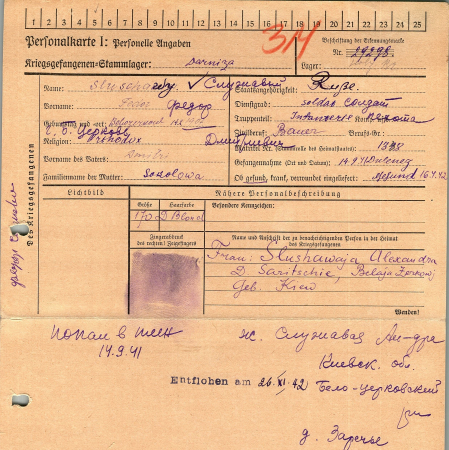 1 2 3 4 5 6 7 8 9 10 11 12 13 14 15 16 17 18 19 20 21 22 23 24 25
Personalkarte I: Personelle Angaben
Beschriftung der Erkennungsmarke
Kriegsgefangenen-Stammlager: Darniza
Nr. 29298
Lager:
Des Kriegsgefangenen
Name: Служавый
Staatsangehörigkeit: Ruße.
Vorname: Fedor Федор
Dienstgrad: soldat солдат
Truppenteil: Infanterie пехота
Geburtstag und -ort:
Zivilberuf: Bauer Berufs-Gr.:
с. Б. Церковь
Religion: Дмитриевич
Matrikel Nr. (Stammrolle des Heimatstaates): 1328
Vorname des Vaters: Dmitri
Gefangennahme (Ort und Datum): 14.9.41
Familienname der Mutter: Sokolowa
Ob gesund, krank, verwundet eingeliefert: Gesund 16.4.42
Lichtbild
Nähere Personalbeschreibung
Größe Haarfarbe Besondere Kennzeichen:
170 D. Blond
Fingerabdruck
des rechten! Zeigefingers
Name und Anschrift der zu benachrichtigenden Person in der Heimat
des Kriegsgefangenen
Frau: Slushawaja Alexandra
D. Saritschie, Belaja Zerkowj
Geb. Kiew
Wenden!
Попал в плен
14.9.41
ж. Служавая Ал-дра
Киевск. обл.
Entflohen am 26.XI.42
Бело-церковский
д. Заречье